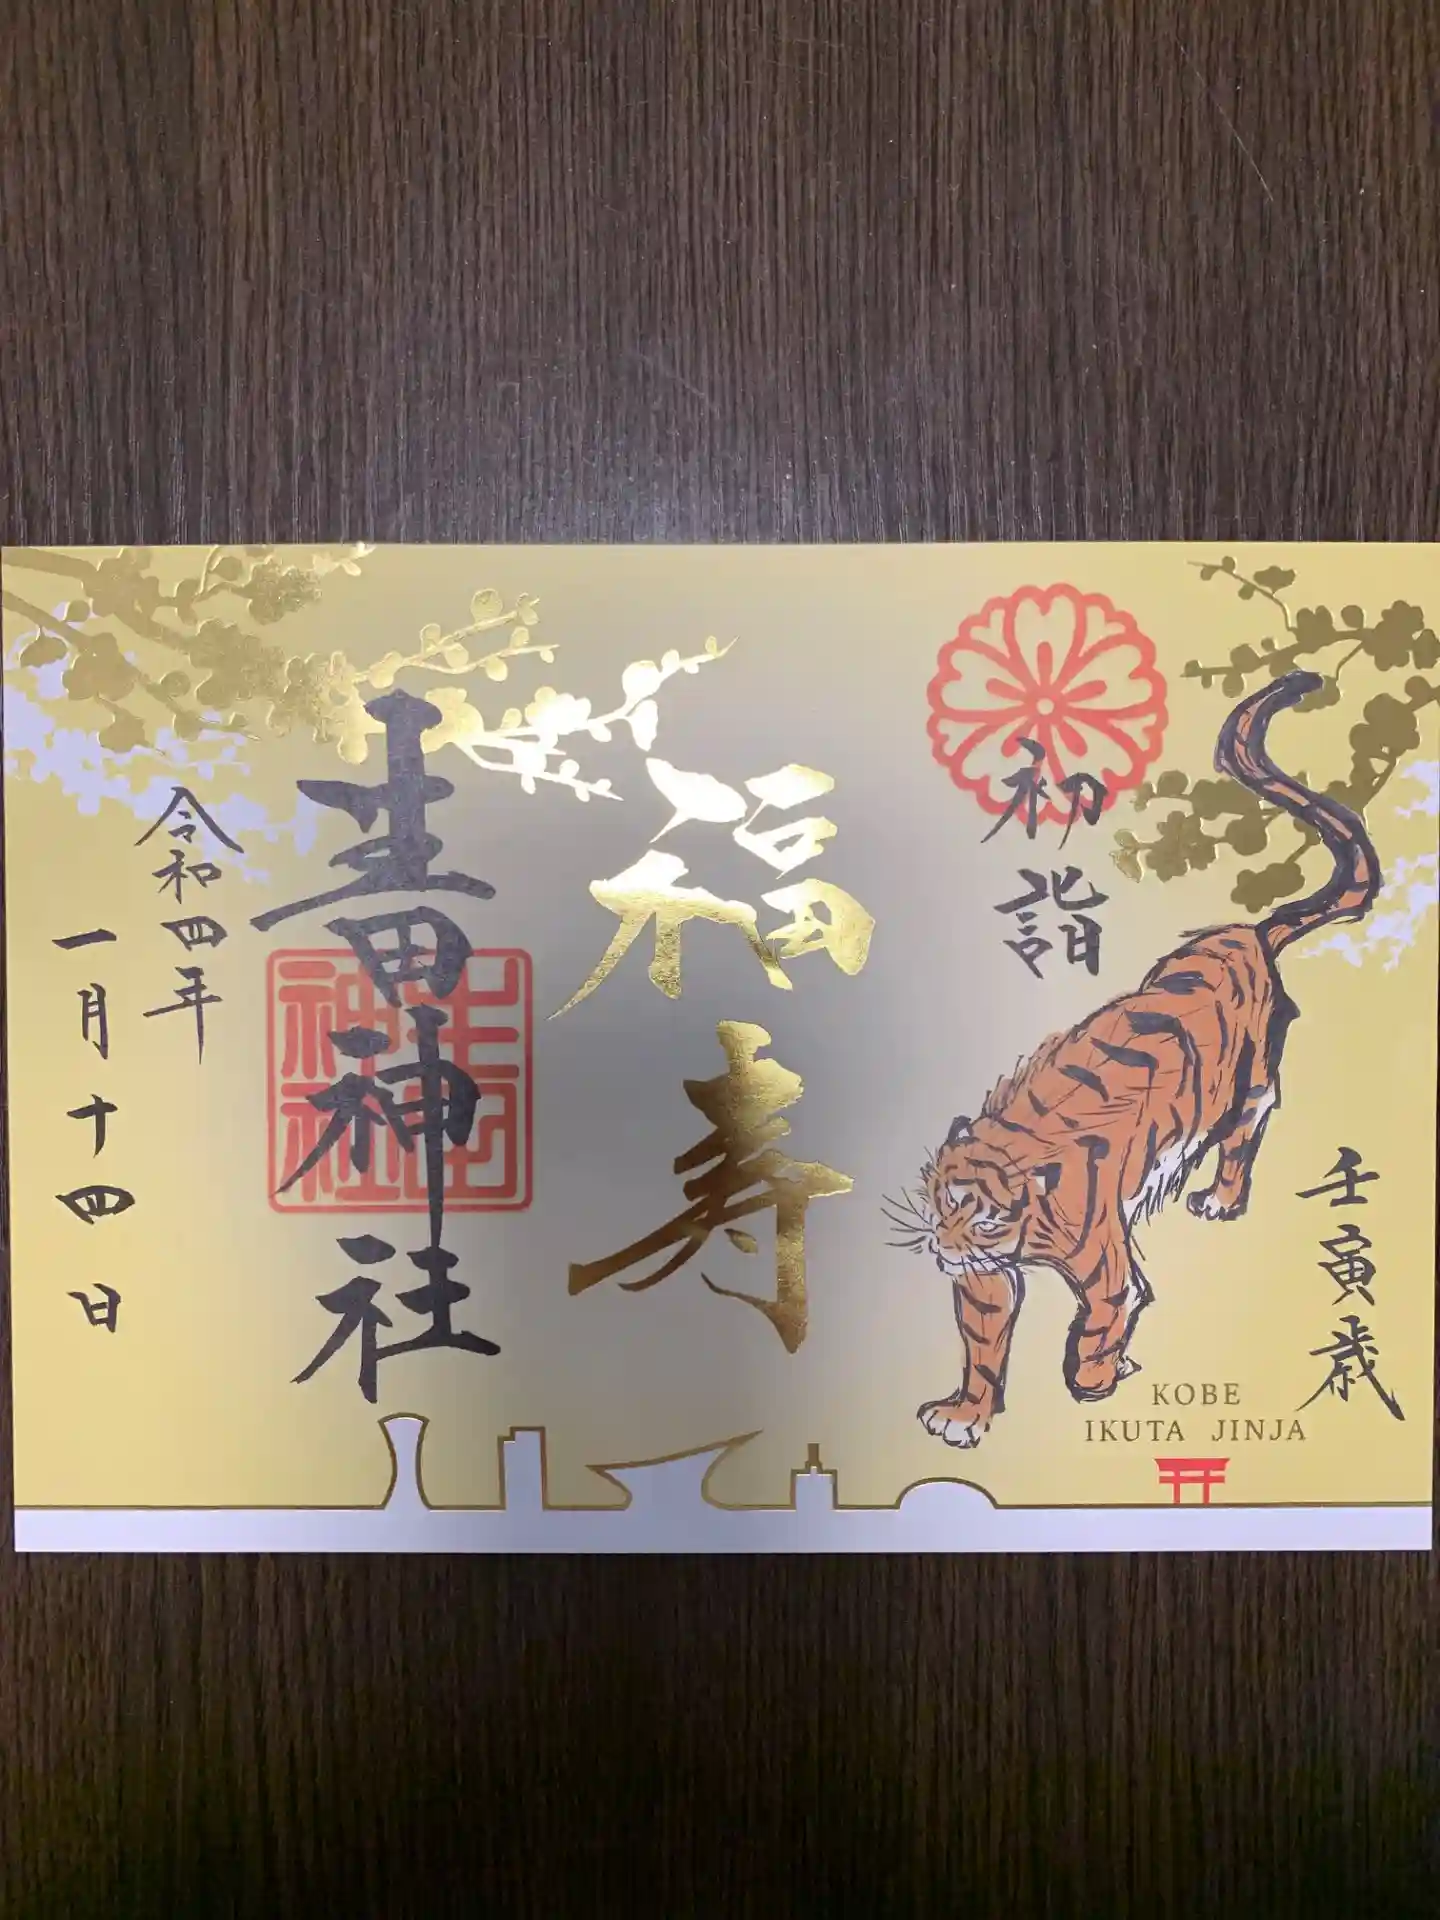 初詣
壬寅歳
福寿
生田神社
生田神社
令和四年
一月十四日
KOBE
IKUTA JINJA